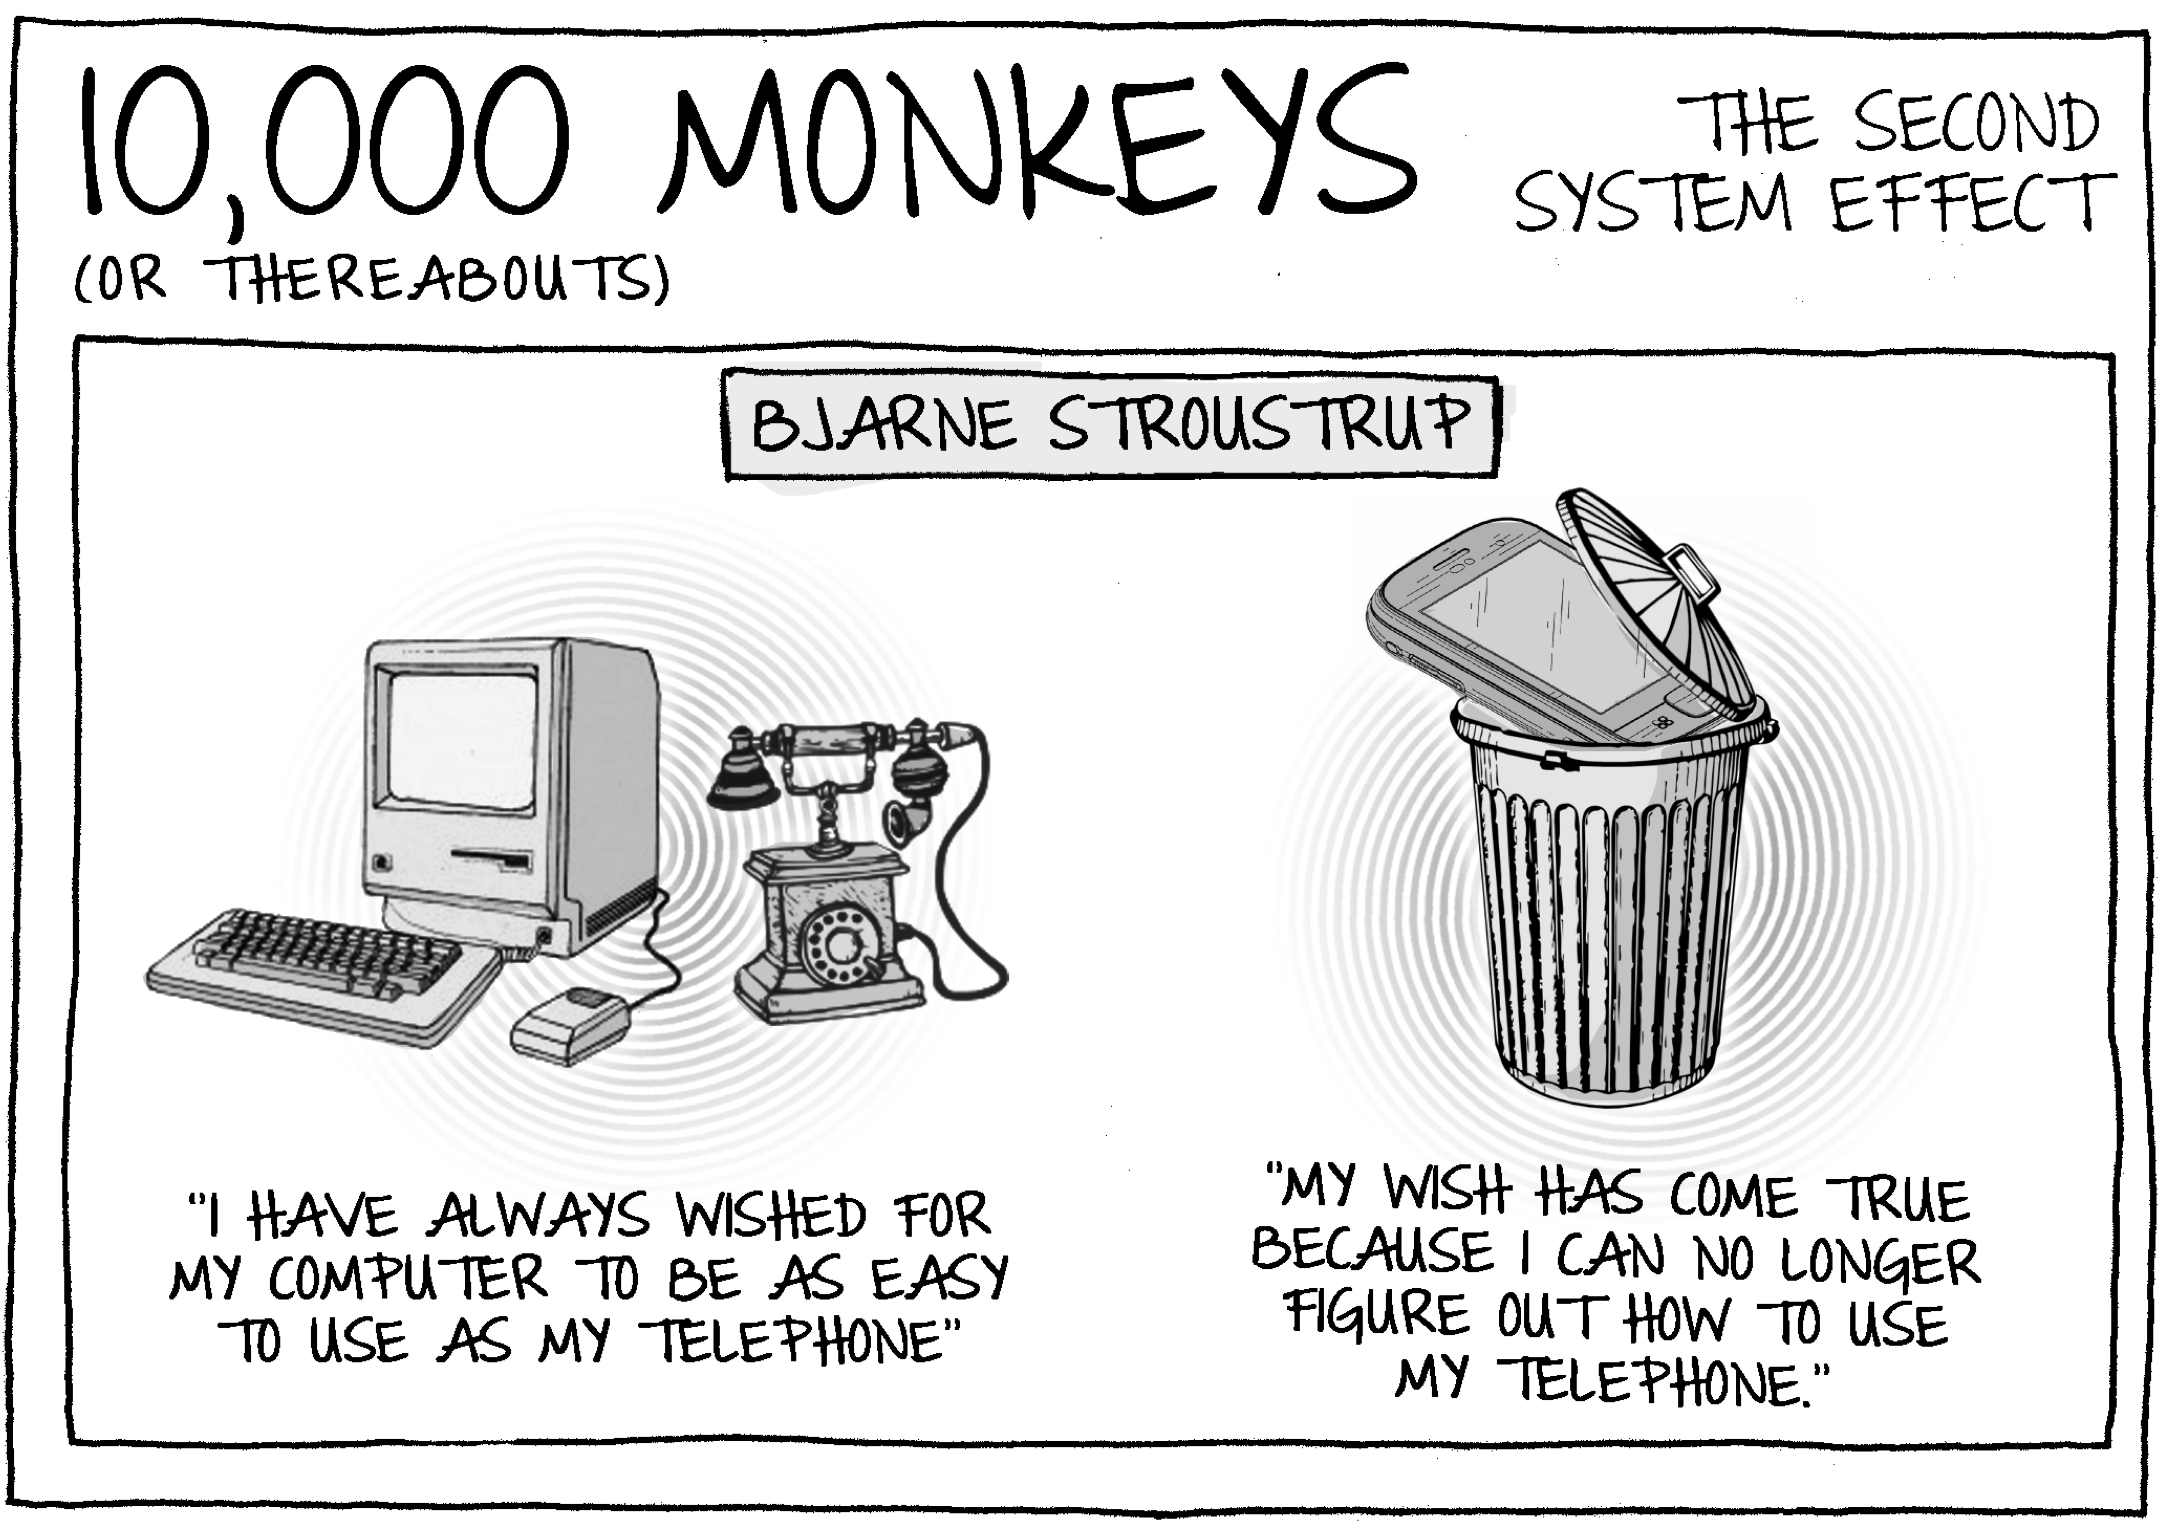 10,000 MONKEYS
(OR THEREABOUTS)
THE SECOND
SYSTEM EFFECT
BJARNE STROUSTRUP
"I HAVE ALWAYS WISHED FOR
MY COMPUTER TO BE AS EASY
TO USE AS MY TELEPHONE"
"MY WISH HAS COME TRUE
BECAUSE I CAN NO LONGER
FIGURE OUT HOW TO USE
MY TELEPHONE."